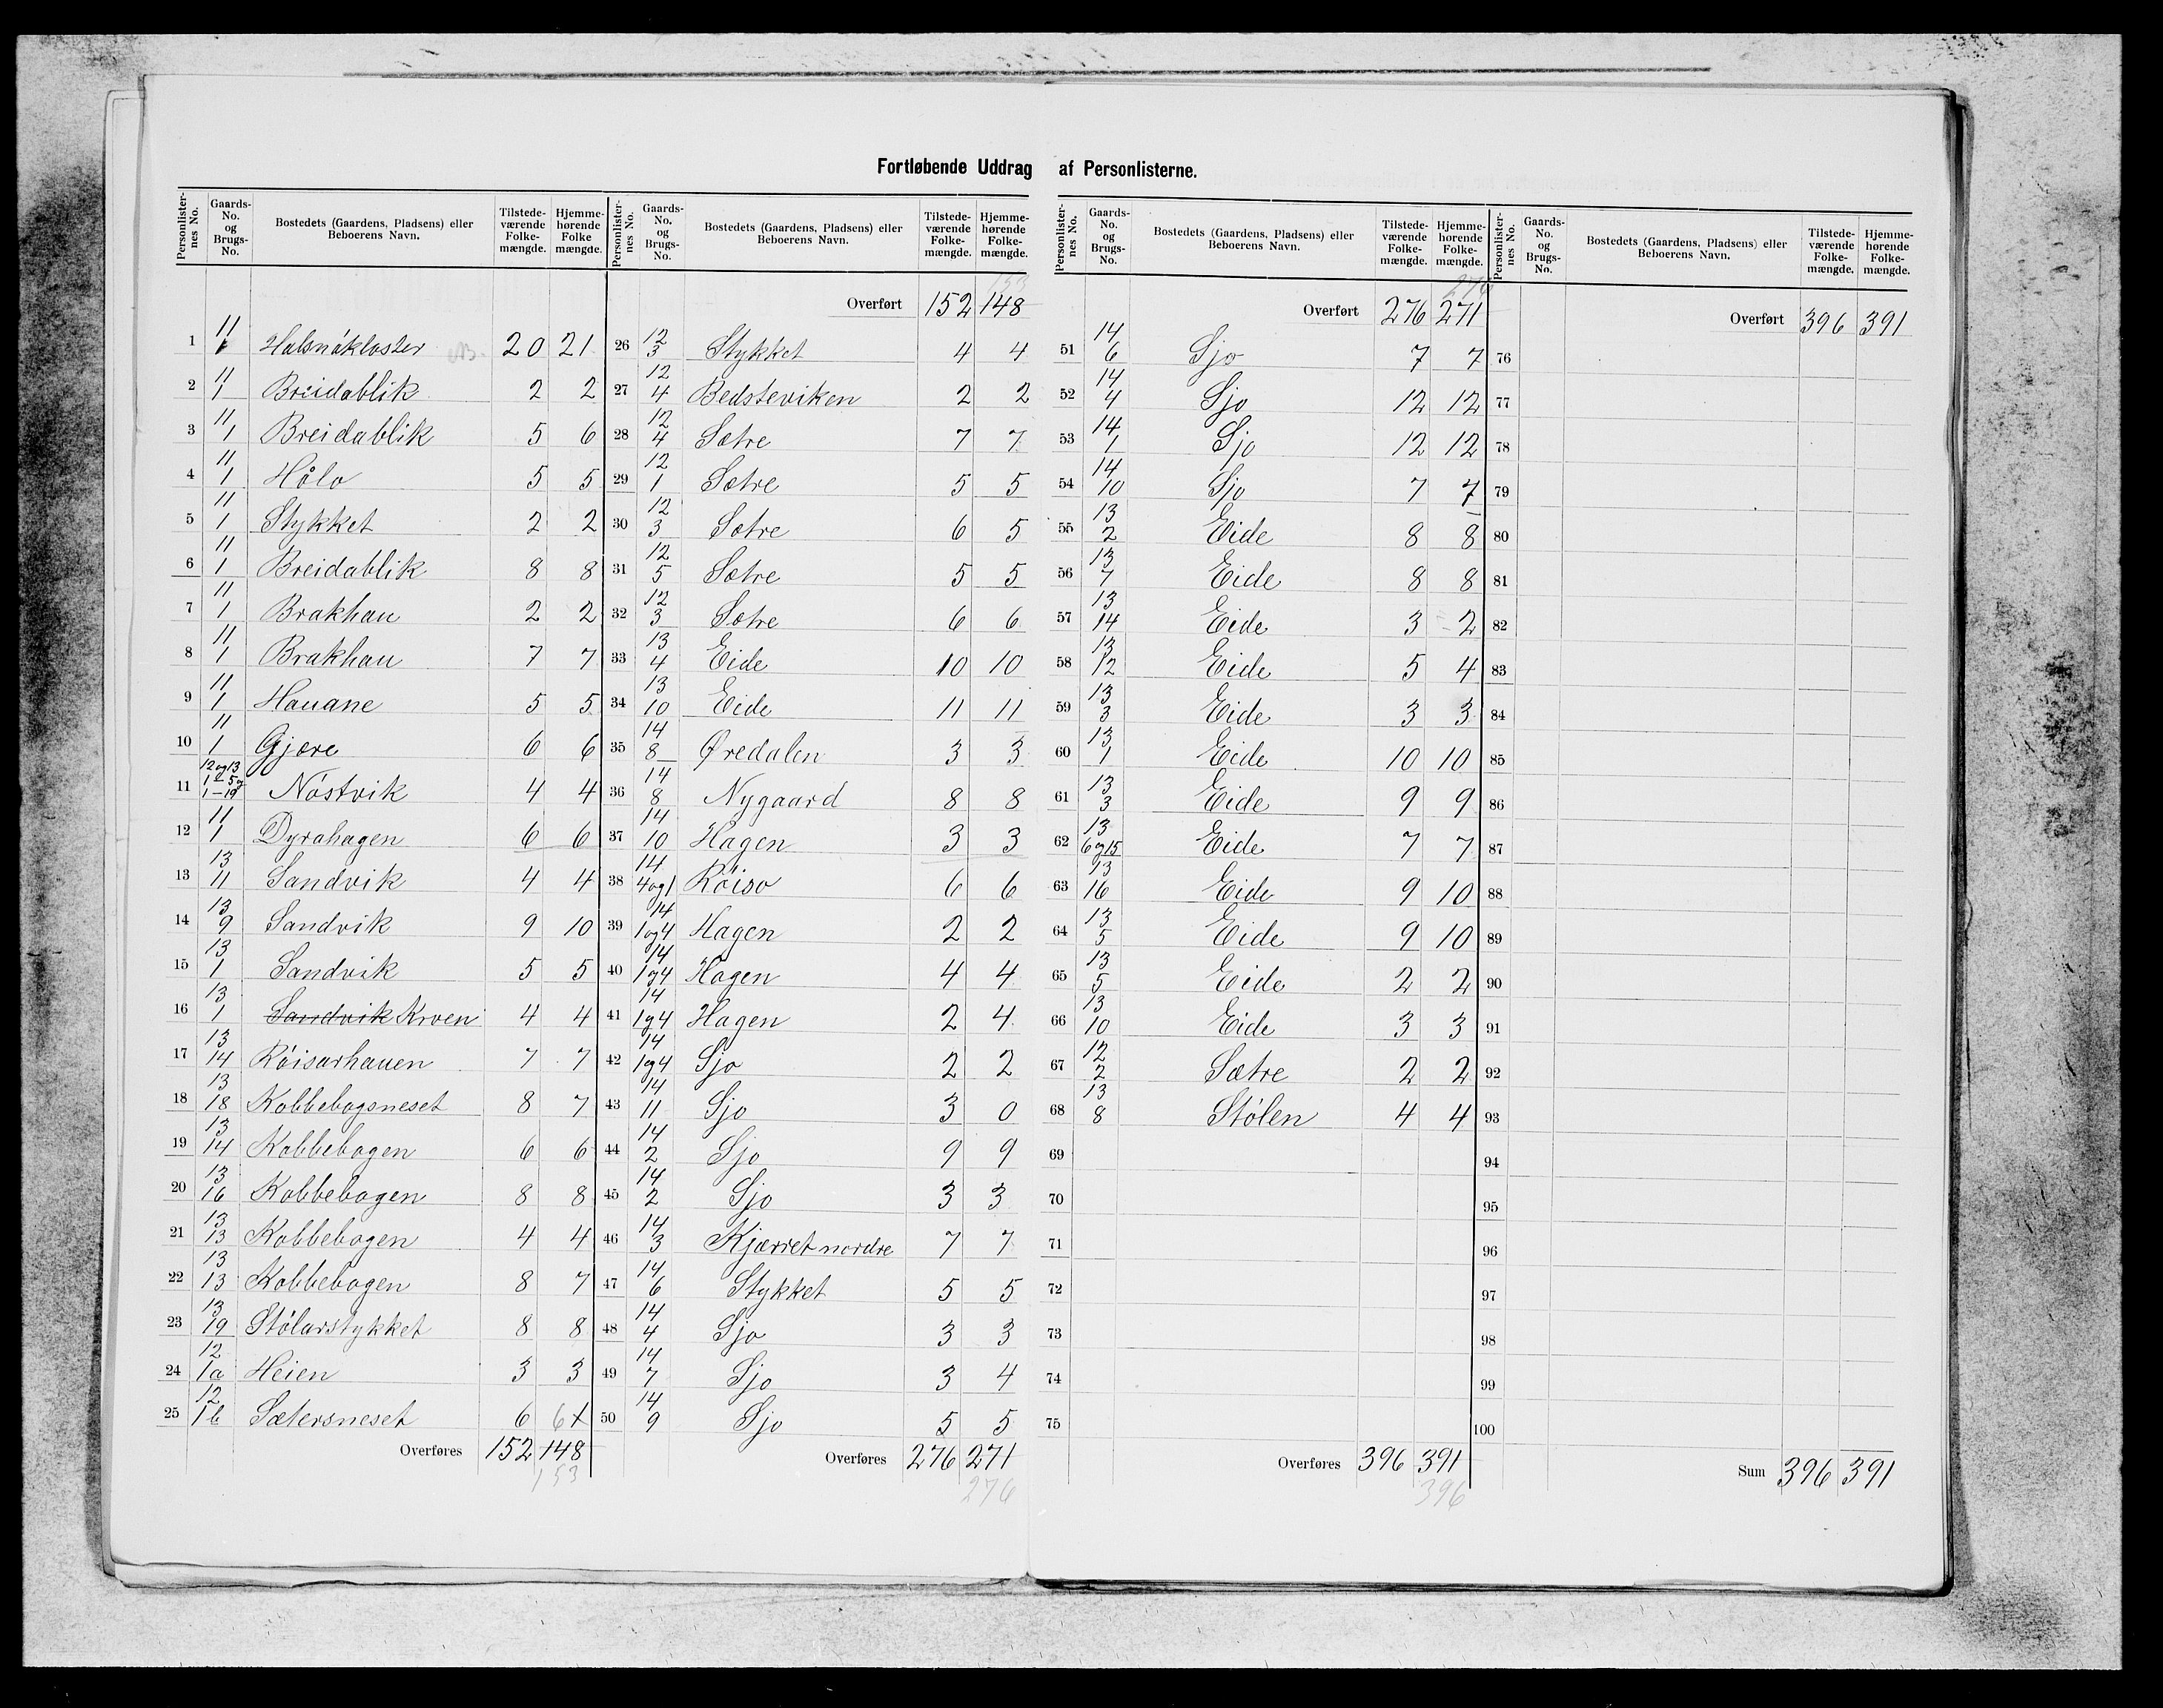 Fortløbende Uddrag af Personlisterne.
Personlister-nes No. | Gaards-No. og Brugs-No. | Bostedets (Gaardens, Pladsens) eller Beboerens Navn. | Tilstede-værende Folke-mængde. | Hjemme-hørende Folke mængde.
1 11 Halsnøkloster 20 21
2 11/1 Breidablik 2 2
3 11/1 Breidablik 5 6
4 11/1 Hålo 5 5
5 11/1 Stykket 2 2
6 11/1 Breidablik 8 8
7 11/1 Brakhau 2 2
8 11/1 Brakhau 7 7
9 11/1 Hauane 5 5
10 11/1 Gjære 6 6
11 12 og 13 1–5 og 1–19 Nóstvik 4 4
12 11/1 Dyrahagen 6 6
13 13/11 Sandvik 4 4
14 13/9 Sandvik 9 10
15 13/1 Sandvik 5 5
16 13/1 Sandvik Kroen 4 4
17 13/14 Róisarhauen 7 7
18 13/18 Kobbebogsneset 8 7
19 13/14 Kobbebogen 6 6
20 13/16 Kobbebogen 8 8
21 13/13 Kobbebogen 4 4
22 13/13 Kobbebogen 8 7
23 13/19 Stølarstykket 8 8
24 12/1a Heien 3 3
25 12/1b Sætersneset 6 6
Overføres 152 148
153
Personlister-nes No. | Gaards-No. og Brugs-No. | Bostedets (Gaardens, Pladsens) eller Beboerens Navn. | Tilstede-værende Folke-mængde. | Hjemme-hørende Folke-mængde.
153
Overført 152 148
26 12/3 Stykket 4 4
27 12/4 Bedsteviken 2 2
28 12/4 Sætre 7 7
29 12/1 Sætre 5 5
30 12/3 Sætre 6 5
31 12/5 Sætre 5 5
32 12/3 Sætre 6 6
33 13/4 Eide 10 10
34 13/10 Eide 11 11
35 14/8 Øredalen 3 3
36 14/8 Nygaard 8 8
37 14/10 Hagen 3 3
38 14/4 og 1 Róiso 6 6
39 14/1 og 4 Hagen 2 2
40 14/1 og 4 Hagen 4 4
41 14/1 og 4 Hagen 2 4
42 14/1 og 4 Sjo 2 2
43 14/11 Sjo 3 0
44 14/2 Sjo 9 9
45 14/2 Sjo 3 3
46 14/3 Kjærret nordre 7 7
47 14/6 Stykket 5 5
48 14/4 Sjo 3 3
49 14/7 Sjo 3 4
50 14/9 Sjo 5 5
Overføres 276 271
276
Personlister-nes No. | Gaards-No. og Brugs-No. | Bostedets (Gaardens, Pladsens) eller Beboerens Navn. | Tilstede-værende Folke-mængde. | Hjemme-hørende Folke-mængde.
276
Overført 276 271
51 14/6 Sjo 7 7
52 14/4 Sjo 12 12
53 14/1 Sjo 12 12
54 14/10 Sjo 7 7
55 13/2 Eide 8 8
56 13/7 Eide 8 8
57 13/14 Eide 3 2
58 13/12 Eide 5 4
59 13/3 Eide 3 3
60 13/1 Eide 10 10
61 13/3 Eide 9 9
62 13/6 og 15 Eide 7 7
63 13/16 Eide 9 10
64 13/5 Eide 9 10
65 13/5 Eide 2 2
66 13/10 Eide 3 3
67 12/2 Sætre 2 2
68 13/8 Stølen 4 4
69
70
71
72
73
74
75
Overføres 396 391
396
Personlister-nes No. | Gaards-No. og Brugs-No. | Bostedets (Gaardens, Pladsens) eller Beboerens Navn. | Tilstede-værende Folke-mængde. | Hjemme-hørende Folke-mængde.
Overført 396 391
76
77
78
79
80
81
82
83
84
85
86
87
88
89
90
91
92
93
94
95
96
97
98
99
100
Sum 396 391